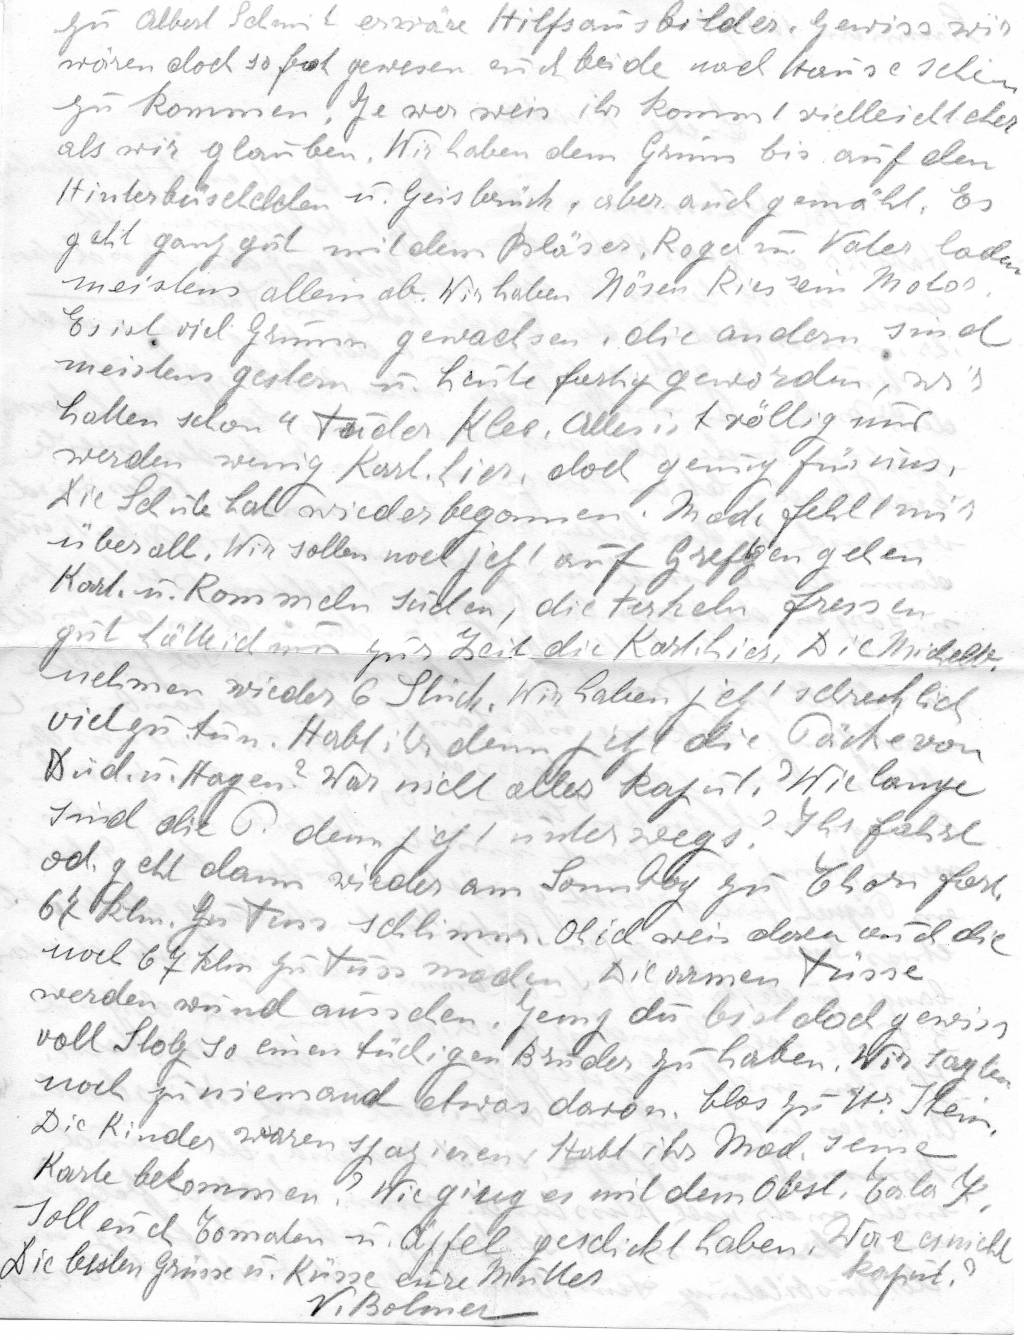 zu Albert Schmit er wäre Hilfsausbilder. Gewiss wir
wären doch so froh gewesen euch beide nach Hause sehen
zu kommen. Je wer weis ihr kommt vielleicht eher
als wir glauben. Wir haben dem Grum bis auf den
Hinterbüschelchen u. Geisbrück, aber auch gemäht. Es
geht ganz gut mit dem Bläser. Roger u Vater laden
meistens allein ab. Wir haben Nösen Ries sein Motor.
Es ist viel Grumm gewachsen, die andern sind
meistens gestern u. heute fertig geworden, wir
hatten schon 4 Fuder Klee. Alles ist völlig nur
werden wenig Kart. hier, doch genug für uns.
Die Schule hat wieder begonnen. Mad. fehlt mir
überall. Wir sollen noch jetzt auf gehen
Kart. u. Rommeln süden, die Ferkeln fressen
gut hätte ich nur zur Zeit die Kart. hier. Die
nehmen wieder 6 Stück. Wir haben jetzt schrecklich
viel zu tun. Habt ihr denn jetzt die Päcke von
Düd. u. Hagen? War nicht alles kaput.? Wie lange
sind die P. denn jetzt unterwegs.? Ihr fahrt
od. geht dann wieder am Sonntag zu Thori fort.
67 Klm. zu Fuss schlimm. Oh ich weis daran auch die
noch 67 Klm zu Fuss machen. Die armen Füsse
werden wund aussehen. Jeng du bist doch gewiss
voll Stolz so einen tüchigen Bruder zu haben. Wir sagten
noch zu niemand etwas davon. blos zu Hr. Stein.
Die Kinder waren spazieren. Habt ihr Mad. seine
Karte bekommen.? Wie ging es mit dem Obst.
Soll euch Tomaten u. Äpfel geschickt haben. War es nicht
kaput.?
Die besten Grüsse u. Küsse eure Mutter
V. Bohmer